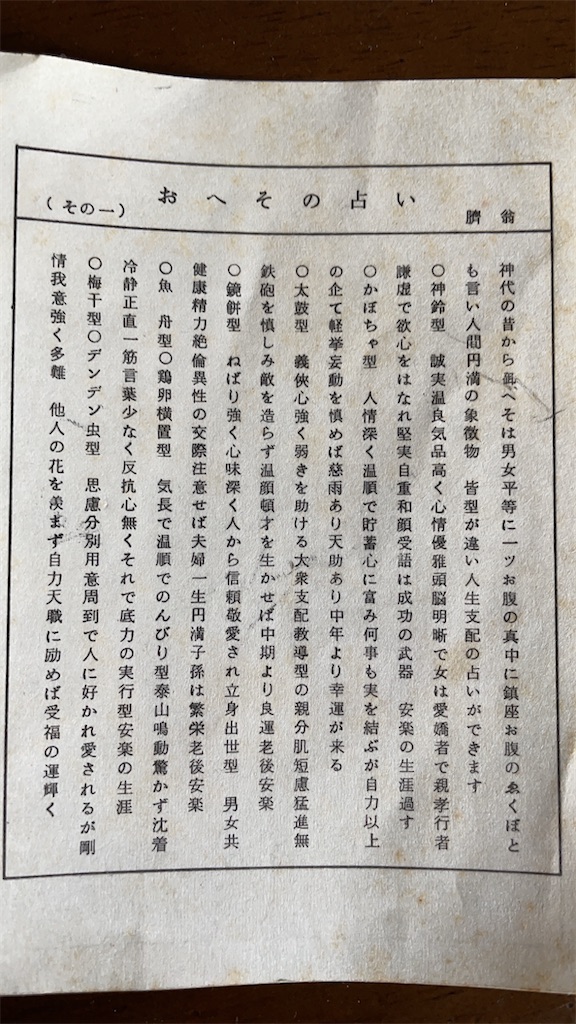 おへその占い
(その一)
臍翁
神代の昔からおへそは男女平等に一ツお腹の真中に鎮座お腹のゑくぼと
も言い人間円満の象徴物　皆型が違い人生支配の占いができます
〇神鈴型　誠実温良気品高く心情優雅頭脳明晰で女は愛嬌者で親孝行者
謙虚で欲心をはなれ堅実自重和顔受語は成功の武器　安楽の生涯過す
〇かぼちゃ型　人情深く温順で貯蓄心に富み何事も実を結ぶが自力以上
の企て軽挙妄動を慎めば慈雨あり天助あり中年より幸運が来る
〇太鼓型　義俠心強く弱きを助ける大衆支配教導型の親分肌短慮猛進無
鉄砲を慎しみ敵を造らず温顔頓才を生かせば中期より良運老後安楽
〇鏡餅型　ねばり強く心味深く人から信頼敬愛され立身出世型　男女共
健康精力絶倫異性の交際注意せば夫婦一生円満子孫は繁栄老後安楽
〇魚　舟型〇鶏卵横置型　気長で温順でのんびり型泰山鳴動驚かず沈着
冷静正直一筋言葉少なく反抗心無くそれで底力の実行型安楽の生涯
〇梅干型〇デンデン虫型　思慮分別用意周到で人に好かれ愛されるが剛
情我意強く多難　他人の花を羨まず自力天職に励めば受福の運輝く